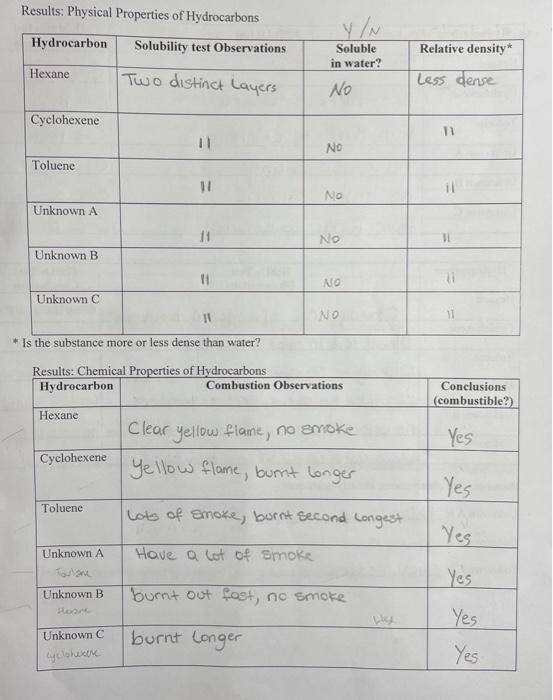 Results: Physical Properties of Hydrocarbons
Y/N
Hydrocarbon Solubility test Observations Soluble in water? Relative density*
Hexane Two distinct Layers No Less dense
Cyclohexene 11 No 11
Toluene 11 No 11
Unknown A 11 No 11
Unknown B 11 NO 11
Unknown C 11 NO 11
* Is the substance more or less dense than water?
Results: Chemical Properties of Hydrocarbons
Hydrocarbon Combustion Observations Conclusions (combustible?)
Hexane Clear yellow flame, no smoke Yes
Cyclohexene Yellow flame, burnt longer Yes
Toluene Lots of smoke, burnt second longest Yes
Unknown A Have a lot of smoke Yes
Unknown B burnt out fast, no smoke Yes
Hexane
Unknown C burnt longer Yes
cyclohexene